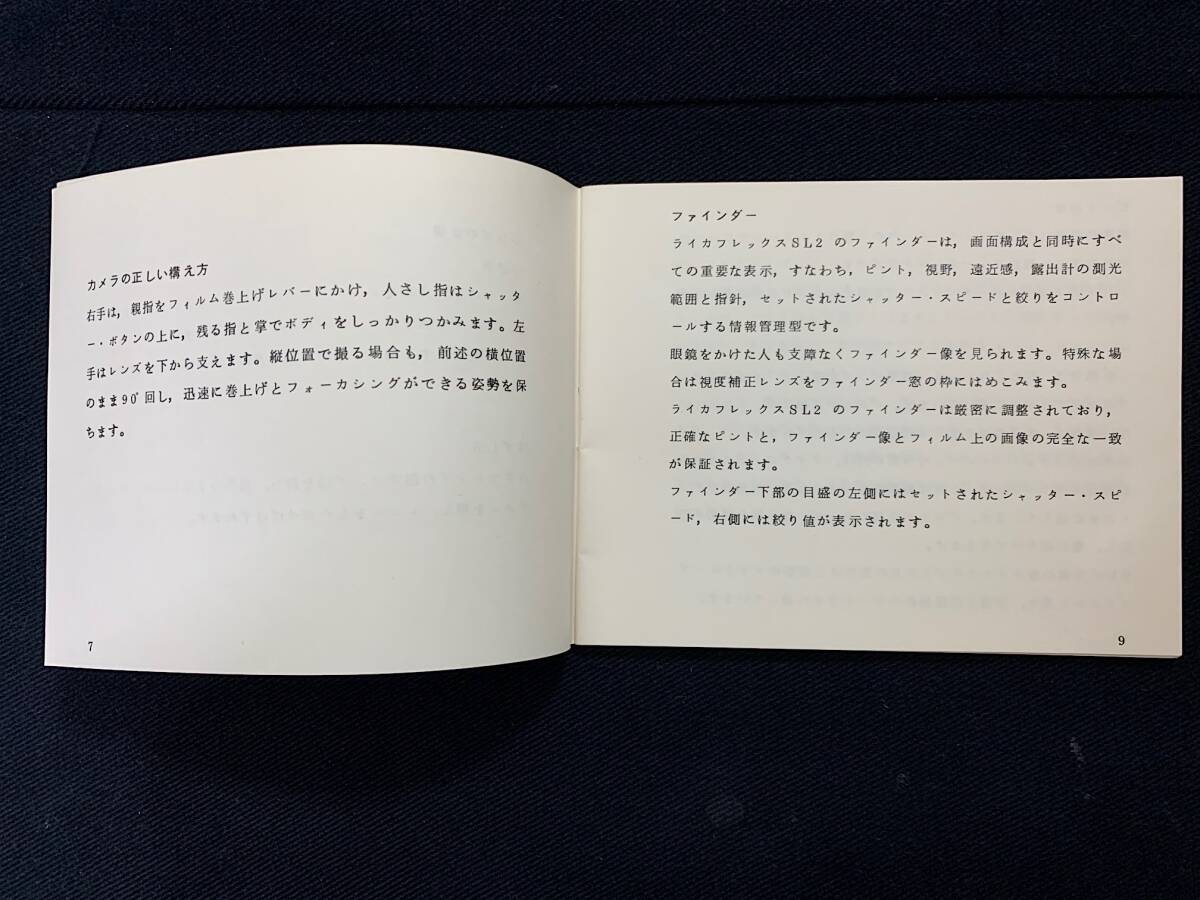 カメラの正しい構え方
右手は, 親指をフィルム巻上げレバーにかけ, 人さし指はシャッタ
ー・ボタンの上に, 残る指と掌でボディをしっかりつかみます。左
手はレンズを下から支えます。縦位置で撮る場合も, 前述の横位置
のまま90°回し, 迅速に巻上げとフォーカシングができる姿勢を保
ちます。
7
ファインダー
ライカフレックスSL2 のファインダーは, 画面構成と同時にすべ
ての重要な表示, すなわち, ピント, 視野, 遠近感, 露出計の測光
範囲と指針, セットされたシャッター・スピードと絞りをコントロ
ールする情報管理型です。
眼鏡をかけた人も支障なくファインダー像を見られます。特殊な場
合は視度補正レンズをファインダー窓の枠にはめこみます。
ライカフレックスSL2 のファインダーは厳密に調整されており,
正確なピントと, ファインダー像とフィルム上の画像の完全な一致
が保証されます。
ファインダー下部の目盛の左側にはセットされたシャッター・スピ
ード, 右側には絞り値が表示されます。
9